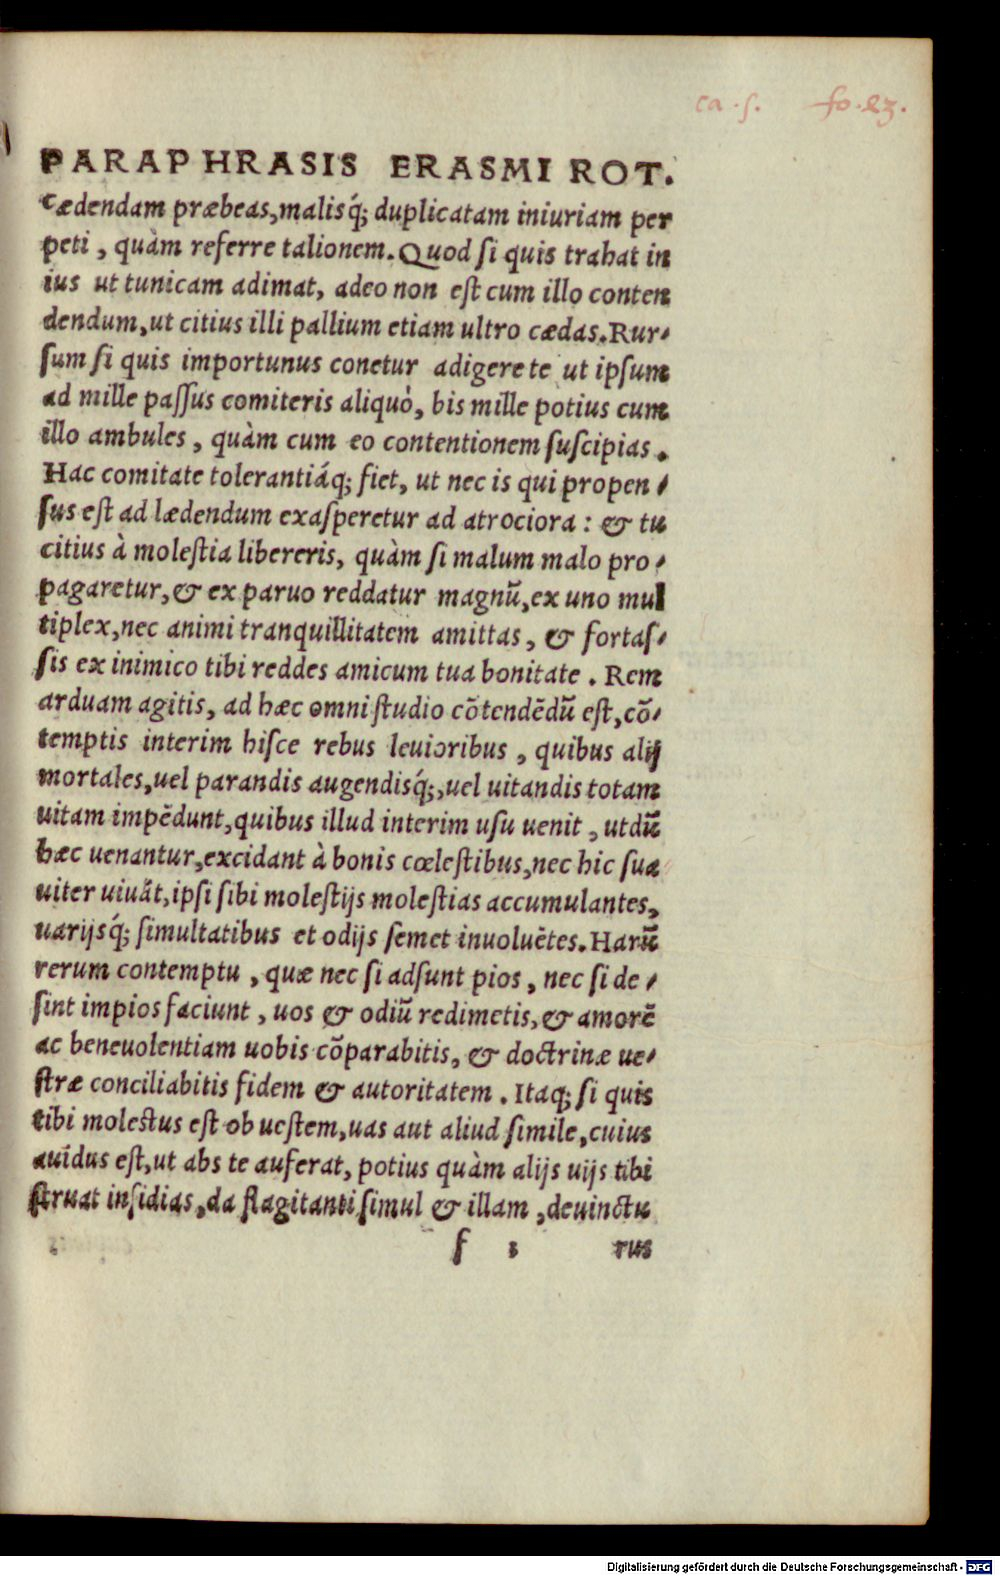 ca .5. fo. 23.
PARAPHRASIS ERASMI ROT.
cædendam præbeas, malisq́; duplicatam iniuriam per
peti, quàm referre talionem. Quod ſi quis trahat in
ius ut tunicam adimat, adeo non eſt cum illo conten
dendum, ut citius illi pallium etiam ultro cædas. Rur-
ſum ſi quis importunus conetur adigere te ut ipſum
ad mille paſſus comiteris aliquò, bis mille potius cum
illo ambules, quàm cum eo contentionem ſuſcipias.
Hac comitate tolerantiáq; fiet, ut nec is qui propen-
ſus eſt ad lædendum exaſperetur ad atrociora: & tu
citius à moleſtia libereris, quàm ſi malum malo pro-
pagaretur, & ex paruo reddatur magnū, ex uno mul
tiplex, nec animi tranquillitatem amittas, & fortaſ-
ſis ex inimico tibi reddes amicum tua bonitate. Rem
arduam agitis, ad hæc omni ſtudio cōtendēdū eſt, cō-
temptis interim hiſce rebus leuioribus, quibus alij
mortales, uel parandis augendisq́;, uel uitandis totam
uitam impēdunt, quibus illud interim uſu uenit, ut dū
hæc uenantur, excidant à bonis cœleſtibus, nec hic ſua
uiter uiuāt, ipſi ſibi moleſtijs moleſtias accumulantes,
uarijsq́; ſimultatibus et odijs ſemet inuoluētes. Harū
rerum contemptu, quæ nec ſi adſunt pios, nec ſi de-
ſint impios faciunt, uos & odiū redimetis, & amorē
ac beneuolentiam uobis cōparabitis, & doctrinæ ue-
ſtræ conciliabitis fidem & autoritatem. Itaq; ſi quis
tibi moleſtus eſt ob ueſtem, uas aut aliud ſimile, cuius
auidus eſt, ut abs te auferat, potius quàm alijs uijs tibi
ſtruat inſidias, da flagitanti ſimul & illam, deuinctu
f 1 rus
Digitalisierung gefördert durch die Deutsche Forschungsgemeinschaft - DFG